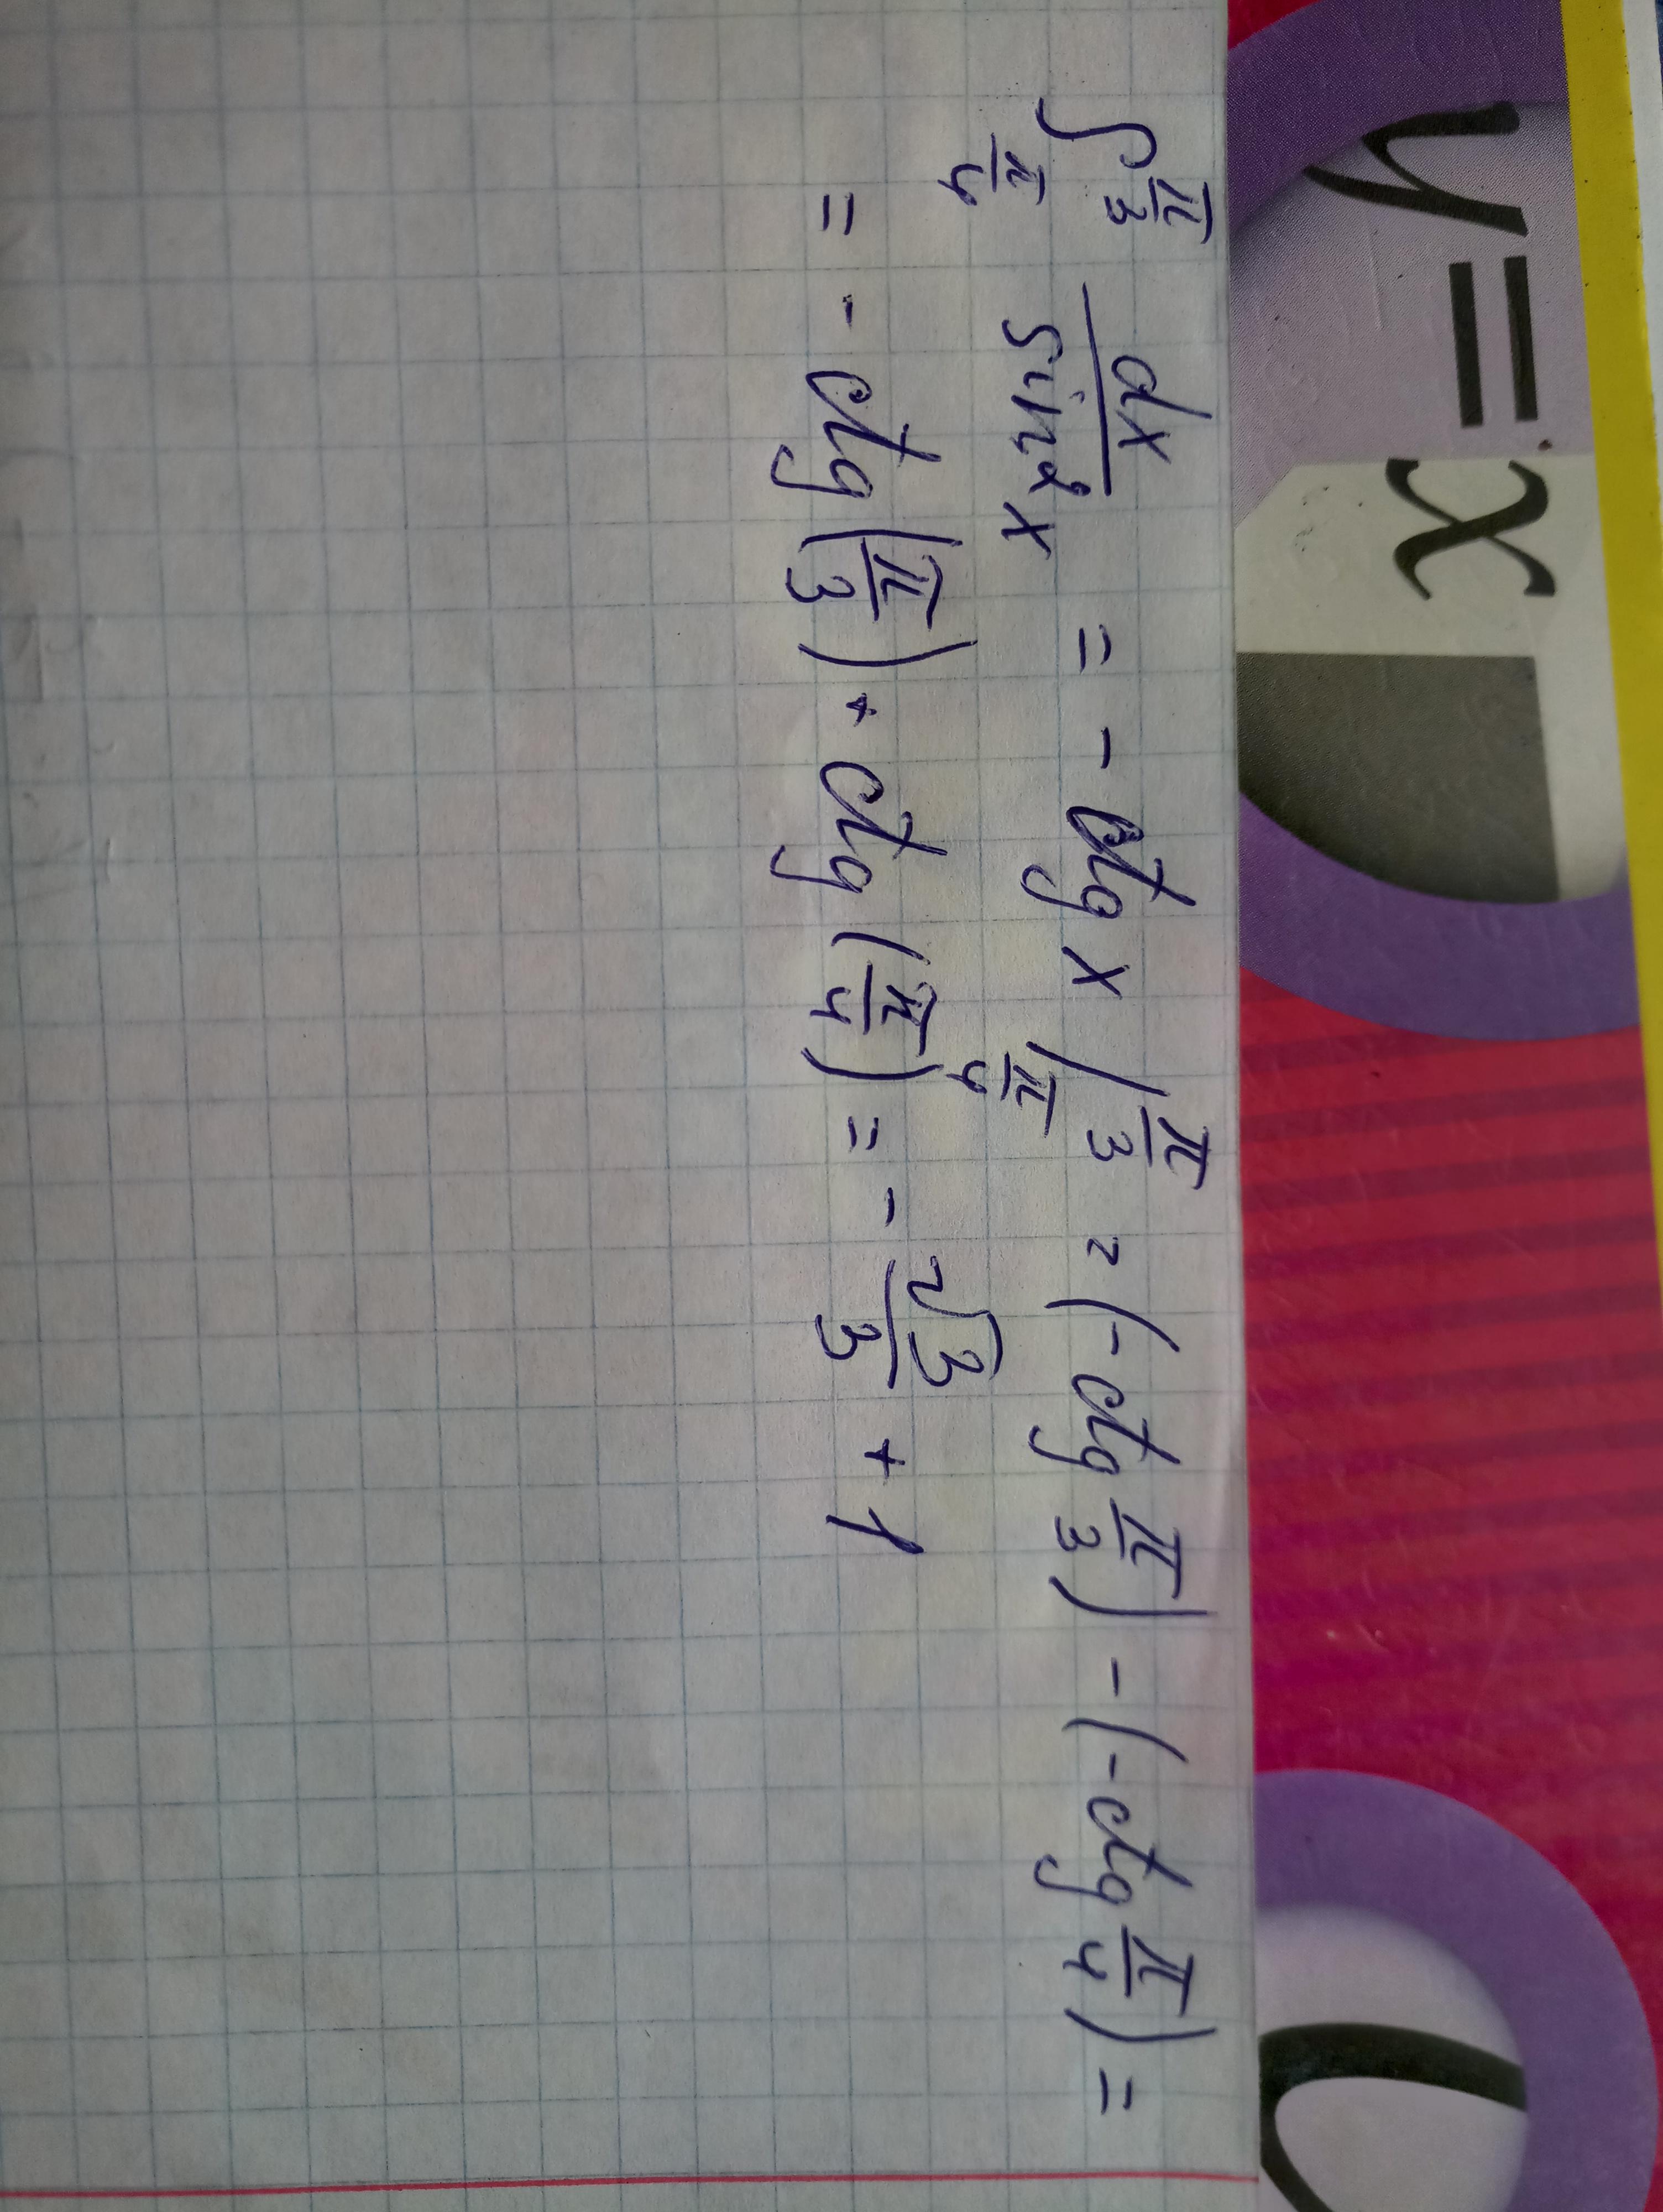 y = x
∫_{π/4}^{π/3} dx/sin²x = - ctg x |_{π/4}^{π/3} = (-ctg π/3) - (-ctg π/4) =
= - ctg(π/3) + ctg(π/4) = - √3/3 + 1